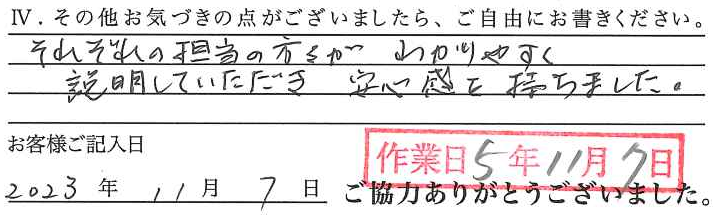 Ⅳ．その他お気づきの点がございましたら、ご自由にお書きください。
それぞれの担当の方々が わかりやすく
説明していただき 安心感を 持ちました。
お客様ご記入日
作業日5年11月7日
2023 年 11 月 7 日 ご協力ありがとうございました。